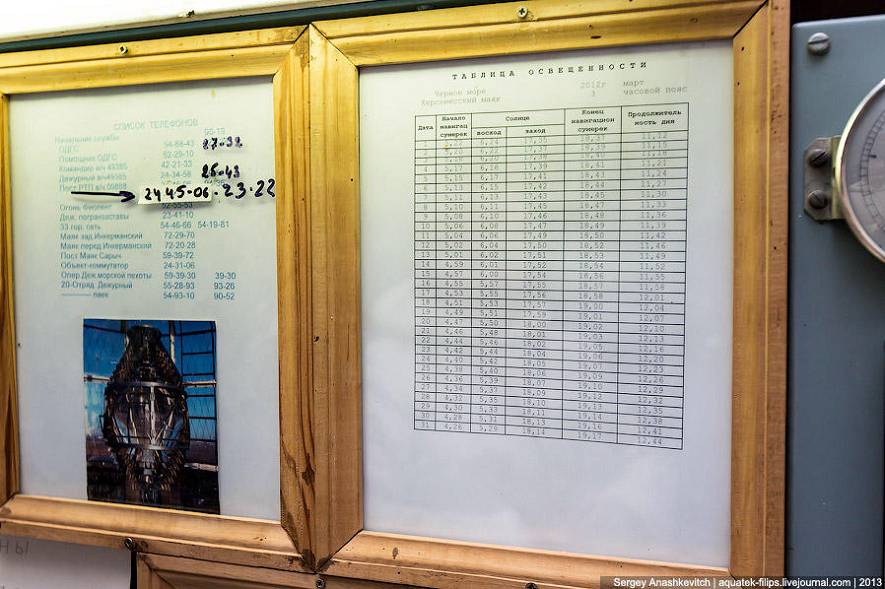 СПИСОК ТЕЛЕФОНОВ
Начальник службы 95-19
ОДГС 54-68-43 27-32
Помощник ОДГС 52-29-10
Командир в/ч 49385 42-21-33
Дежурный в/ч49385 24-34-58 25-43
Пост РТП
24 45-06. 23-22
Огонь Фиолент 52-55-53
Деж. погранзаставы 23-41-10
33 гор. сеть 54-46-66 54-19-81
Маяк зад.Инкерманский 72-29-70
Маяк перед Инкерманский 72-20-28
Пост Маяк Сарыч 59-39-72
Объект-коммутатор 24-31-06
Опер.Деж.морской пехоты 59-39-30 39-30
20-Отряд Дежурный 55-28-93 93-26
маяк 54-93-10 90-52
ТАБЛИЦА ОСВЕЩЕННОСТИ
Черное море 2012г март
Херсонесский маяк 3 часовой пояс
Дата Начало навигац сумерек Солнца восход заход Конец навигацион сумерек Продолжитель ность дня
1 5,22 6,24 17,35 18,37 11,12
2 5,20 6,22 17,37 18,39 11,15
3 18,40 11,18
4 5,17 6,18 17,39 18,41 11,21
5 5,15 6,17 17,41 18,43 11,24
6 5,13 6,15 17,42 18,44 11,27
7 5,11 6,13 17,43 18,45 11,30
8 5,10 6,11 17,45 18,47 11,33
9 5,08 6,10 17,46 18,48 11,36
10 5,06 6,08 17,47 18,49 11,39
11 5,04 6,06 17,49 18,50 11,42
12 5,02 6,04 17,50 18,52 11,46
13 5,01 6,02 17,51 18,53 11,49
14 4,59 6,01 17,52 18,54 11,52
15 4,57 6,00 17,54 18,56 11,55
16 4,55 5,57 17,55 18,57 11,58
17 4,53 5,55 17,56 18,58 12,01
18 4,51 5,53 17,57 19,00 12,04
19 4,49 5,51 17,59 19,01 12,07
20 4,47 5,50 18,00 19,02 12,10
21 4,46 5,48 18,01 19,03 12,13
22 4,44 5,46 18,02 19,05 12,16
23 4,42 5,44 18,04 19,06 12,20
24 4,40 5,42 18,05 19,07 12,23
25 4,38 5,40 18,06 19,09 12,26
26 4,36 5,39 18,07 19,10 12,29
27 4,34 5,37 18,09 19,12 12,32
28 4,32 5,35 18,10 19,13 12,35
29 4,30 5,33 18,11 19,14 12,38
30 4,28 5,31 18,13 19,16 12,41
31 4,26 5,29 18,14 19,17 12,44
Sergey Anashkevitch | aquatek-filips.livejournal.com | 2013